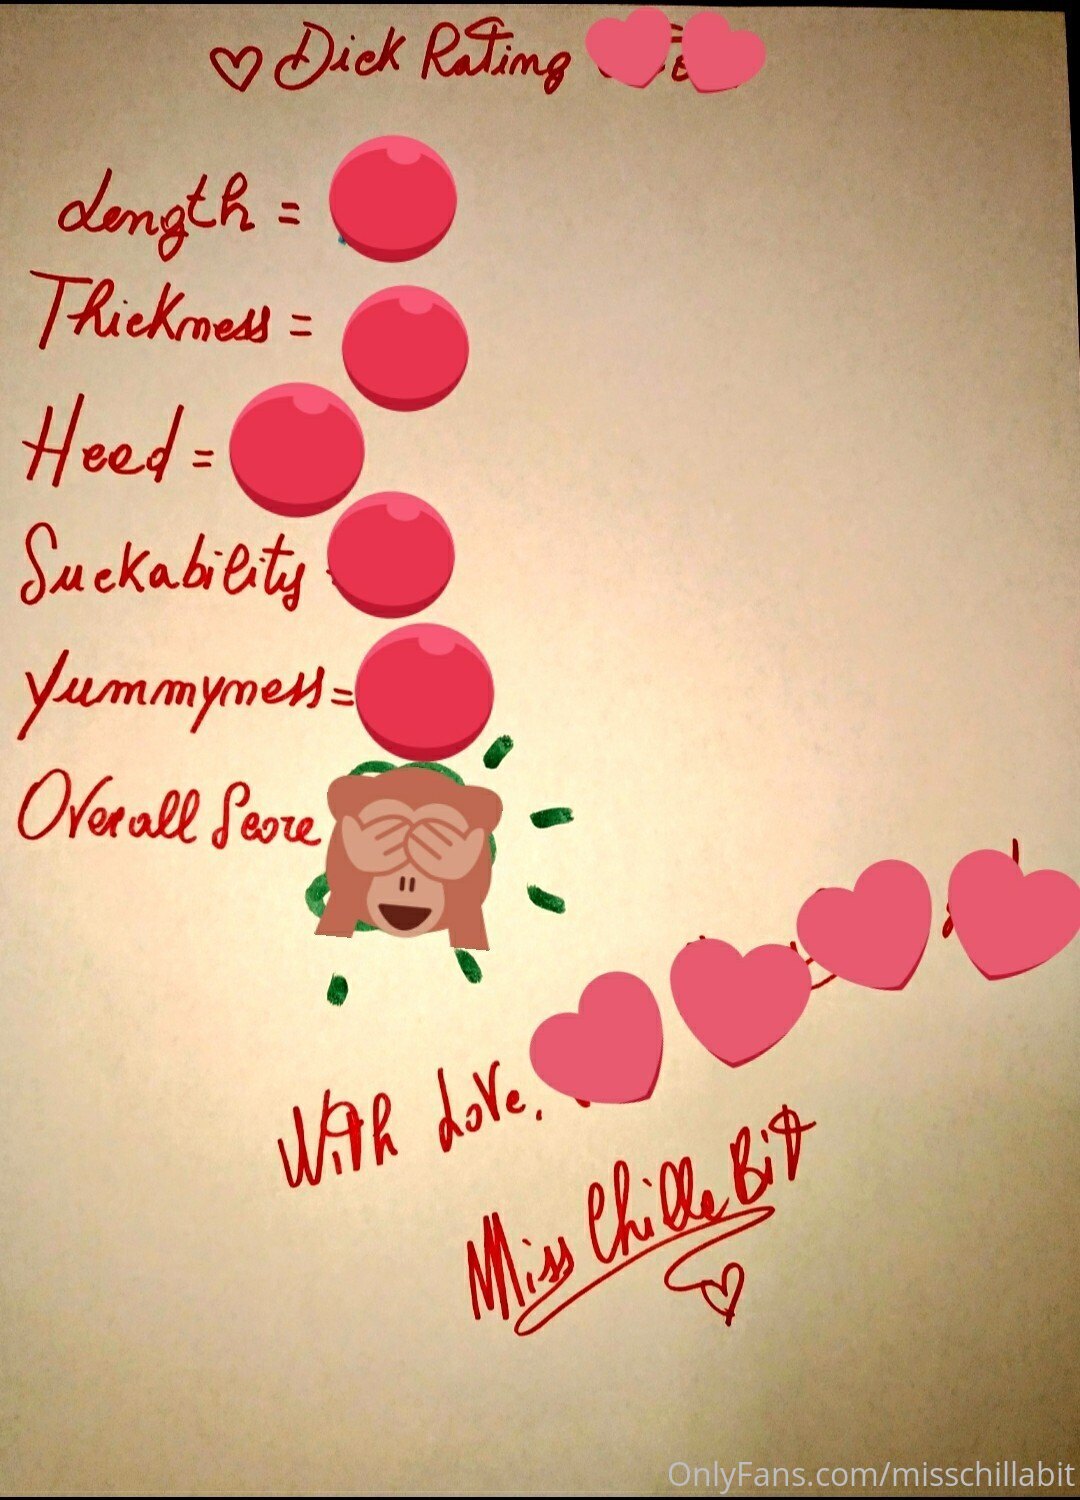 Dick Rating
Length =
Thickness =
Heed =
Suckability
Yummyness =
Overall Score
With Love,
Miss ChillaBit
OnlyFans.com/misschillabit